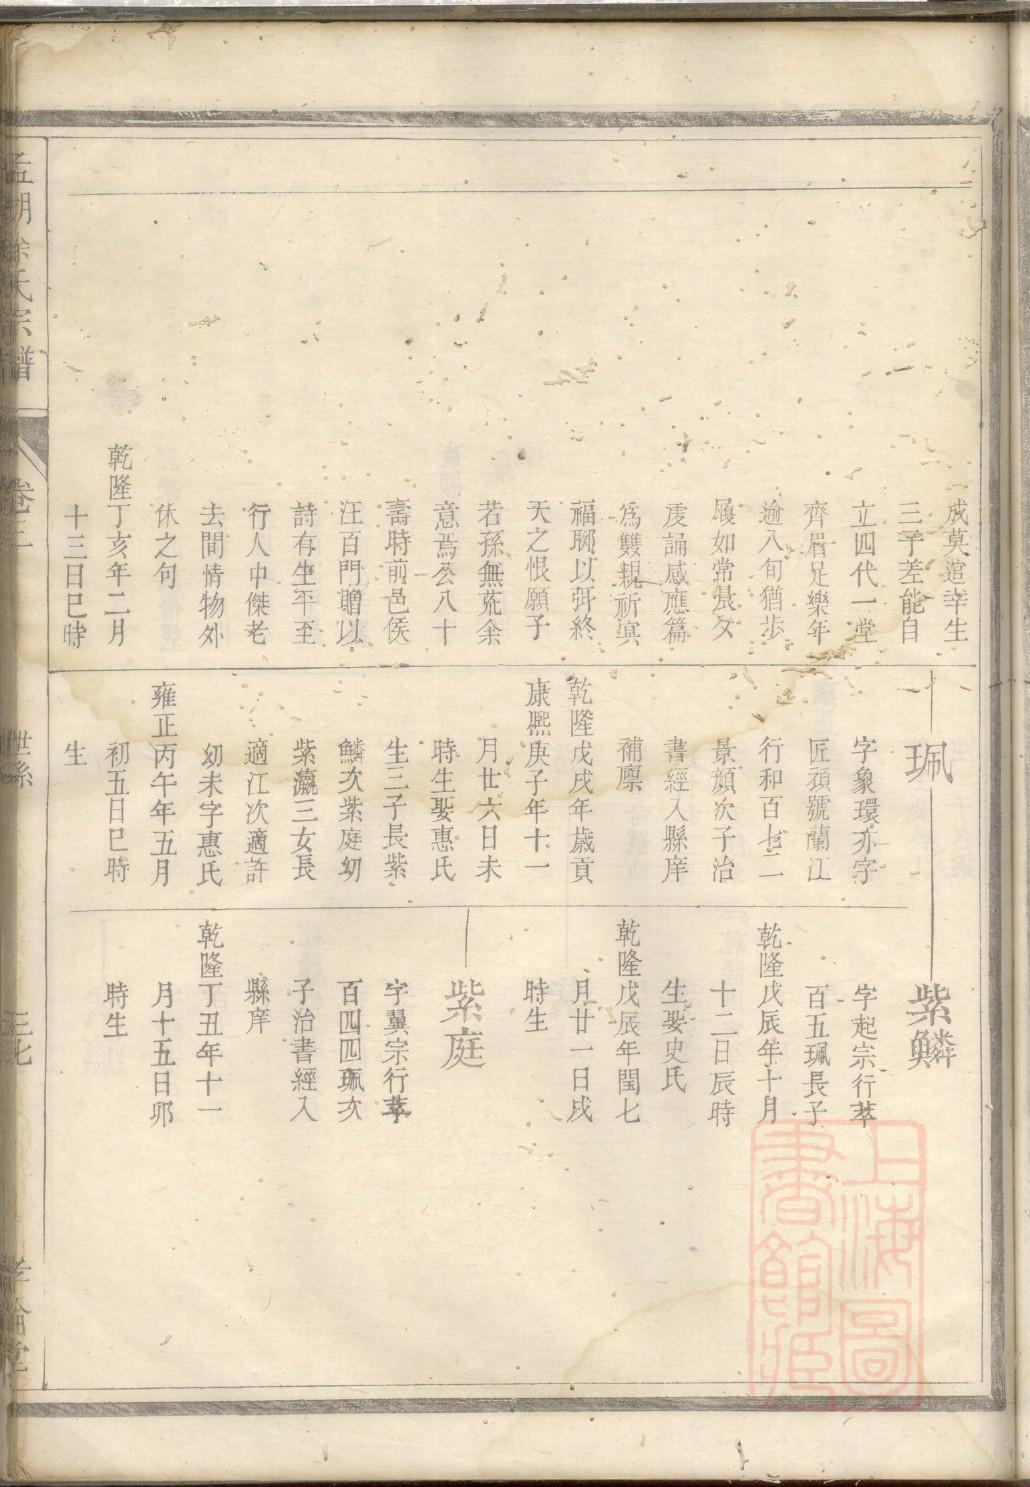 成莫逭幸生
三子差能自
立四代一堂
齊眉足樂年
逾八旬猶步
履如常晨夕
虔誦感應篇
為雙親祈冥
福聊以弭終
天之恨願子
若孫無荒余
意焉公八十
壽時前邑侯
汪百門贈以
詩有生平至
行人中傑老
去閒情物外
休之句
乾隆丁亥年二月
十三日巳時
珮
字象環亦字
匠頏號蘭江
行和百七二
景顏次子治
書經入縣庠
補廩
乾隆戊戌年歲貢
康熙庚子年十一
月廿六日未
時生娶惠氏
生三子長紫
鱗次紫庭幼
紫瀛三女長
適江次適許
幼未字惠氏
雍正丙午年五月
初五日巳時
生
紫鱗
字起宗行萃
百五珮長子
乾隆戊辰年十月
十二日辰時
生娶史氏
乾隆戊辰年閏七
月廿一日戌
時生
紫庭
字翼宗行萃
百四四珮次
子治書經入
縣庠
乾隆丁丑年十一
月十五日卯
時生
孟湖徐氏宗譜
卷三
世系
三七
孝倫堂
上海圖
書館藏